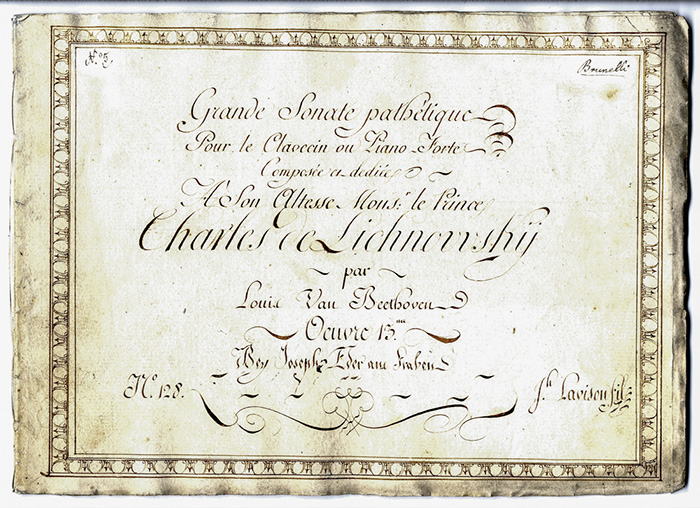 N.º 5.
Brunelli
Grande Sonate pathétique
Pour le Clavecin ou Piano-Forte
Composée et dediée
A Son Altesse Mons: le Prince
Charles de Lichnovvskÿ
par
Louis Van Beethoven
Oeuvre 13.
Bey Joseph Eder am Graben
N.º 128.